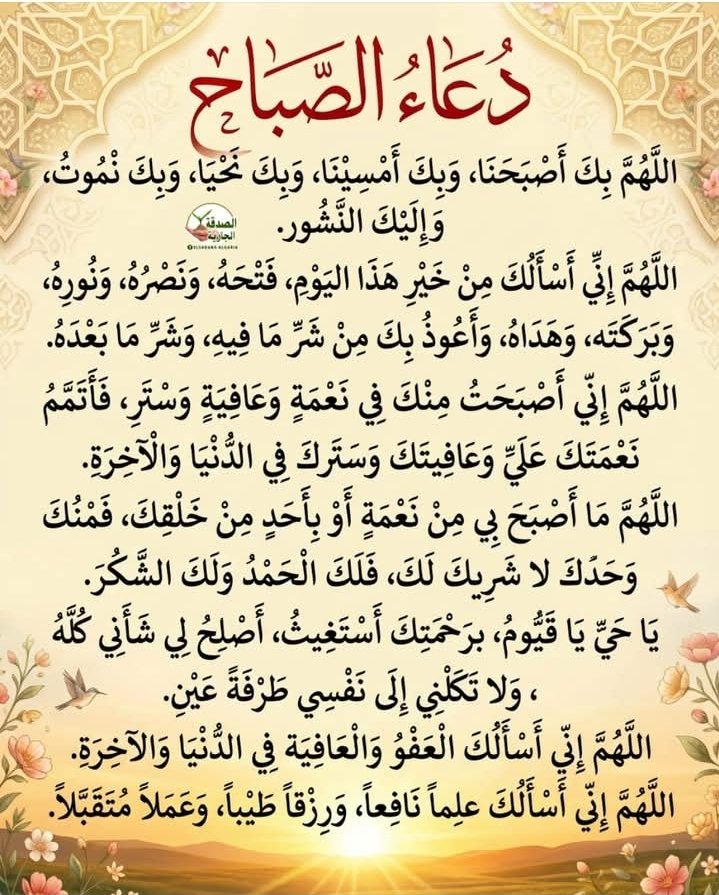 دُعَاءُ الصَّبَاحِ
اللَّهُمَّ بِكَ أَصْبَحَنَا، وَبِكَ أَمْسِيْنَا، وَبِكَ نَحْيَا، وَبِكَ نْمُوتُ،
وَإِلَيْكَ النَّشُور.
الصدقة
الجارية
اللَّهُمَّ إِنِّي أَسْأَلُكَ مِنْ خَيْرِ هَذَا اليَوْمِ، فَتْحَهُ، وَنَصْرُهُ، وَنُورِهُ،
وَبَرَكَتَه، وَهَدَاهُ، وَأَعُوذُ بِكَ مِنْ شَرِّ مَا فِيهِ، وَشَرِّ مَا بَعْدَهُ.
اللَّهُمَّ إِنِّي أَصْبَحَتُ مِنْكَ فِي نَعْمَةٍ وَعَافِيَةٍ وَسْتَرِ، فَأَتَمَّمُ
نَعْمَتَكَ عَلَيِّ وَعَافِيتَكَ وَسَتَركَ فِي الدُّنْيَا وَالْآخِرَةِ.
اللَّهُمَّ مَا أَصْبَحَ بِي مِنْ نَعْمَةٍ أَوْ بِأَحَدٍ مِنْ خَلْقِكَ، فَمْنُكَ
وَحَدَكَ لا شَرِيكَ لَكَ، فَلَكَ الْحَمْدُ وَلَكَ الشَّكُرَ.
يَا حَيِّ يَا قَيُّومُ، برَحْمَتِكَ أَسْتَغِيثُ، أَصْلِحُ لِي شَأَنِي كُلَّهُ
، وَلا تَكَلْنِي إِلَى نَفْسِي طَرْفَةً عَيْنِ.
اللَّهُمَّ إِنِّي أَسْأَلُكَ الْعَفْوُ وَالْعَافِيَة فِي الدُّنْيَا وَالآخِرَةِ.
اللَّهُمَّ إِنِّي أَسْأَلُكَ علِماً نَافِعاً، وَرِزْقاً طَيْباً، وَعَمَلاً مُتَقَبَّلاً.